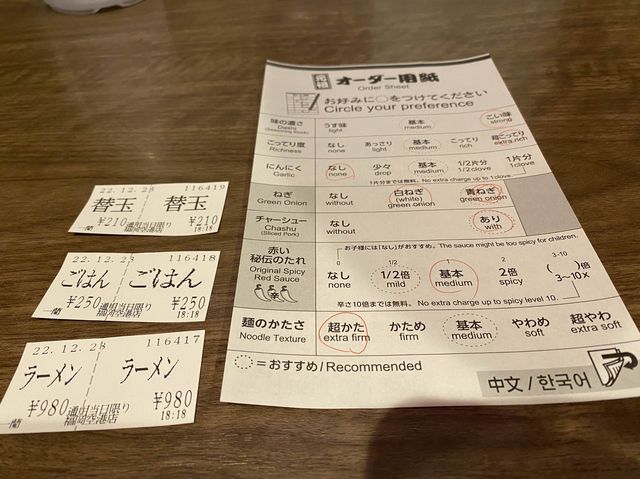 22.12.23 116419
替玉 替玉
¥210 通用当日限り ¥210
一蘭 福岡空港店 18:18
22.12.23 116418
ごはん ごはん
¥250 通用当日限り ¥250
一蘭 福岡空港店 18:18
22.12.23 116417
ラーメン ラーメン
¥980 通用当日限り ¥980
一蘭 福岡空港店 18:18
元祖 オーダー用紙
Order Sheet
お好みに○をつけてください
Circle your preference
味の濃さ うす味 基本 こい味
Dashi light medium strong
こってり度 なし あっさり 基本 こってり 超こってり
Richness none light medium rich extra rich
にんにく なし 少々 基本 1/2片分 1片分
Garlic none drop medium 1/2clove 1clove
1片分までは無料。No extra charge up to 1clove.
ねぎ なし 白ねぎ 青ねぎ
Green Onion without (white) green onion green onion
チャーシュー なし あり
Chashu (Sliced Pork) without with
お子様には「なし」がおすすめ。The sauce might be too spicy for children.
赤い秘伝のたれ
Original Spicy Red Sauce
辛
0 1/2 1 2 3-10
なし 1/2倍 基本 2倍 ( )倍
none mild medium spicy 3~10x
辛さ10倍までは無料。No extra charge up to spicy level 10.
麺のかたさ 超かた かため 基本 やわめ 超やわ
Noodle Texture extra firm firm medium soft extra soft
=おすすめ/Recommended
中文/한국어